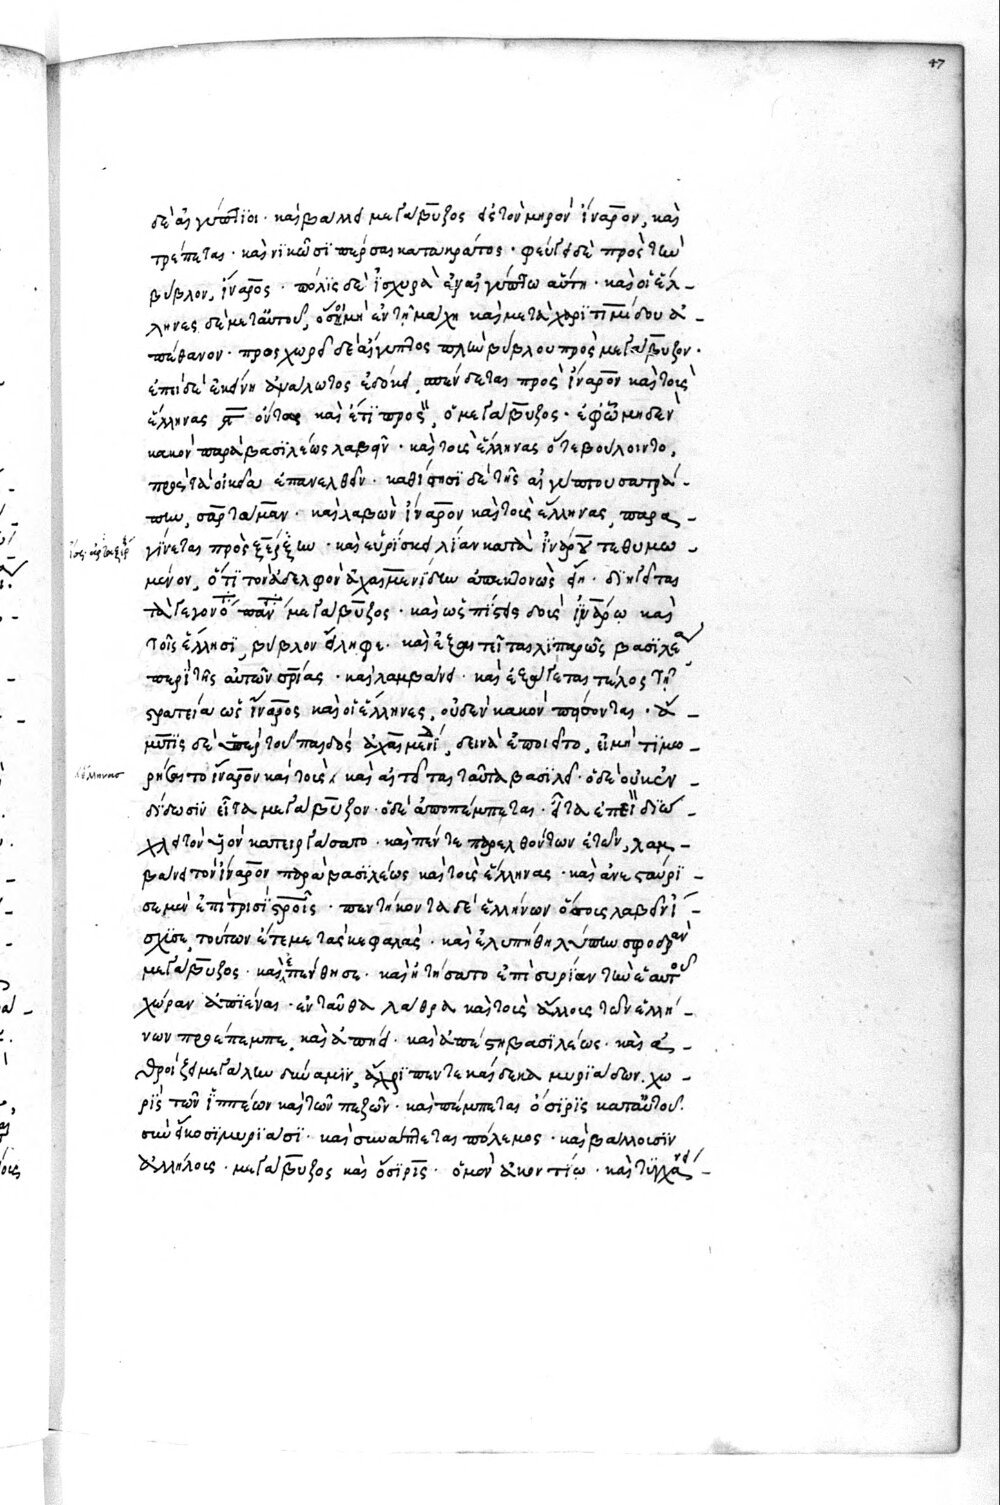 47
δὲ αἰγύπτϊοι · καὶ βάλλει μεγάβυζος εἰς τὸν μηρὸν ἴναρον, καὶ
τρέπεται · καὶ νϊκῶσϊ πέρσαι κατακράτος · φεύγει δὲ πρὸς τὴν
βύβλον, ἴναρος · πόλϊς δὲ ἰσχυρὰ ἐν αἰγύπτω αὕτη · καὶ οἱ ἕλ–
ληνες δὲ μετ αὐτοῦ, ὅσοι μὴ ἐν τῇ μάχη καὶ μετὰ χαριτιμίδου ἀ–
πέθανον · προσχωρεῖ δὲ αἴγυπτος πλὴν βύβλου πρὸς μεγάβυζον ·
ἐπεὶ δὲ ἐκείνη ἀνάλωτος ἐδόκει, σπένδεται πρὸς ἴναρον καὶ τοὺς
ἕλληνας οὄντας καὶ ἔτϊ πρὸς, ὁ μεγάβυζος · ἐφῶ μηδὲν
κακὸν παρὰ βασϊλέως λαβεῖν · καὶ τοὺς ἕλληνας ὅτε βούλοιντο,
πρὸς τὰ οἰκεῖα ἐπανελθεῖν · καθίστησϊ δὲ τῆς αἰγύπτου σατρά–
πην, σαρταμαν · καὶ λαβὼν ἴναρον καὶ τοὺς ἕλληνας, παρα–
ἴσως ἀρταξέρξ
γίνεται πρὸς ξέρξην · καὶ εὑρίσκει λίαν κατὰ ἰνάρου τεθυμω–
μένον, ὅτϊ τὸν ἀδελφὸν ἀχαιμενίδην ἀπεκτονὼς εἴη · διηγεῖται
τὰ γεγονότα πάντα μεγάβυζος · καὶ ὡς πίστεις δοὺς ἰνάρω καὶ
τοῖς ἕλλησϊ, βύβλον εἴληφε · καὶ ἐξαιτεῖται λϊπαρῶς βασϊλέα
περὶ τῆς αὐτῶν σωτηρίας · καὶ λαμβάνει · καὶ ἐξάγεται τέλος τῆ
στρατεία ὡς ἴναρος καὶ οἱ ἕλληνες, οὐδὲν κακὸν πείσονται · ἄ–
μυτϊς δὲ ὑπὲρ τοῦ παιδὸς ἀχαιμενίδου, δεινὰ ἐποιεῖτο, εἰ μὴ τιμω–
ἕλληνας
ρήσαιτο ἴναρον καὶ τοὺς, καὶ αἰτεῖται ταῦτα βασϊλεῖ · ὁ δὲ οὐκ ἐν
δίδωσϊν εἶτα μεγάβυζον · ὁ δὲ ἀποπέμπεται · εἶτα ἐπεὶ διώ–
χλει τὸν υἱὸν κατειργάσατο · καὶ πέντε παρελθόντων ἐτῶν, λαμ–
βάνει τὸν ἴναρον παρὰ βασϊλέως καὶ τοὺς ἕλληνας · καὶ ἀνεσταύρϊ–
σε μὲν ἐπὶ τρισὶ σταυροῖς · πεντήκοντα δὲ ἑλλήνων ὅσους λαβεῖν ἴ–
σχϊσε, τούτων ἔτεμε τὰς κεφαλάς · καὶ ἐλυπήθη λύπην σφοδρὰν
μεγάβυζος · καὶ ἐπένθησε · καὶ ἠτήσατο ἐπὶ συρίαν τὴν ἑαυτοῦ
χώραν ἀπϊέναι · ἐνταῦθα λάθρα καὶ τοὺς ἄλλους τῶν ἑλλή–
νων προέπεμπε, καὶ ἀπῄει · καὶ ἀπέστη βασϊλέως · καὶ ἀ–
θροίζει μεγάλην δύναμϊν, ἄχρϊ πεντεκαίδεκα μυρϊάδων. χω–
ρὶς τῶν ἱππέων καὶ τῶν πεζῶν · καὶ πέμπεται ὄσϊρϊς κατ αὐτοῦ
σὺν εἴκοσϊ μυρϊάσϊ · καὶ συνάπτεται πόλεμος · καὶ βάλλουσϊν
ἀλλήλους · μεγάβυζος καὶ ὄσϊρϊς · ὁ μὲν ἀκοντίω · καὶ τυγχάνει–